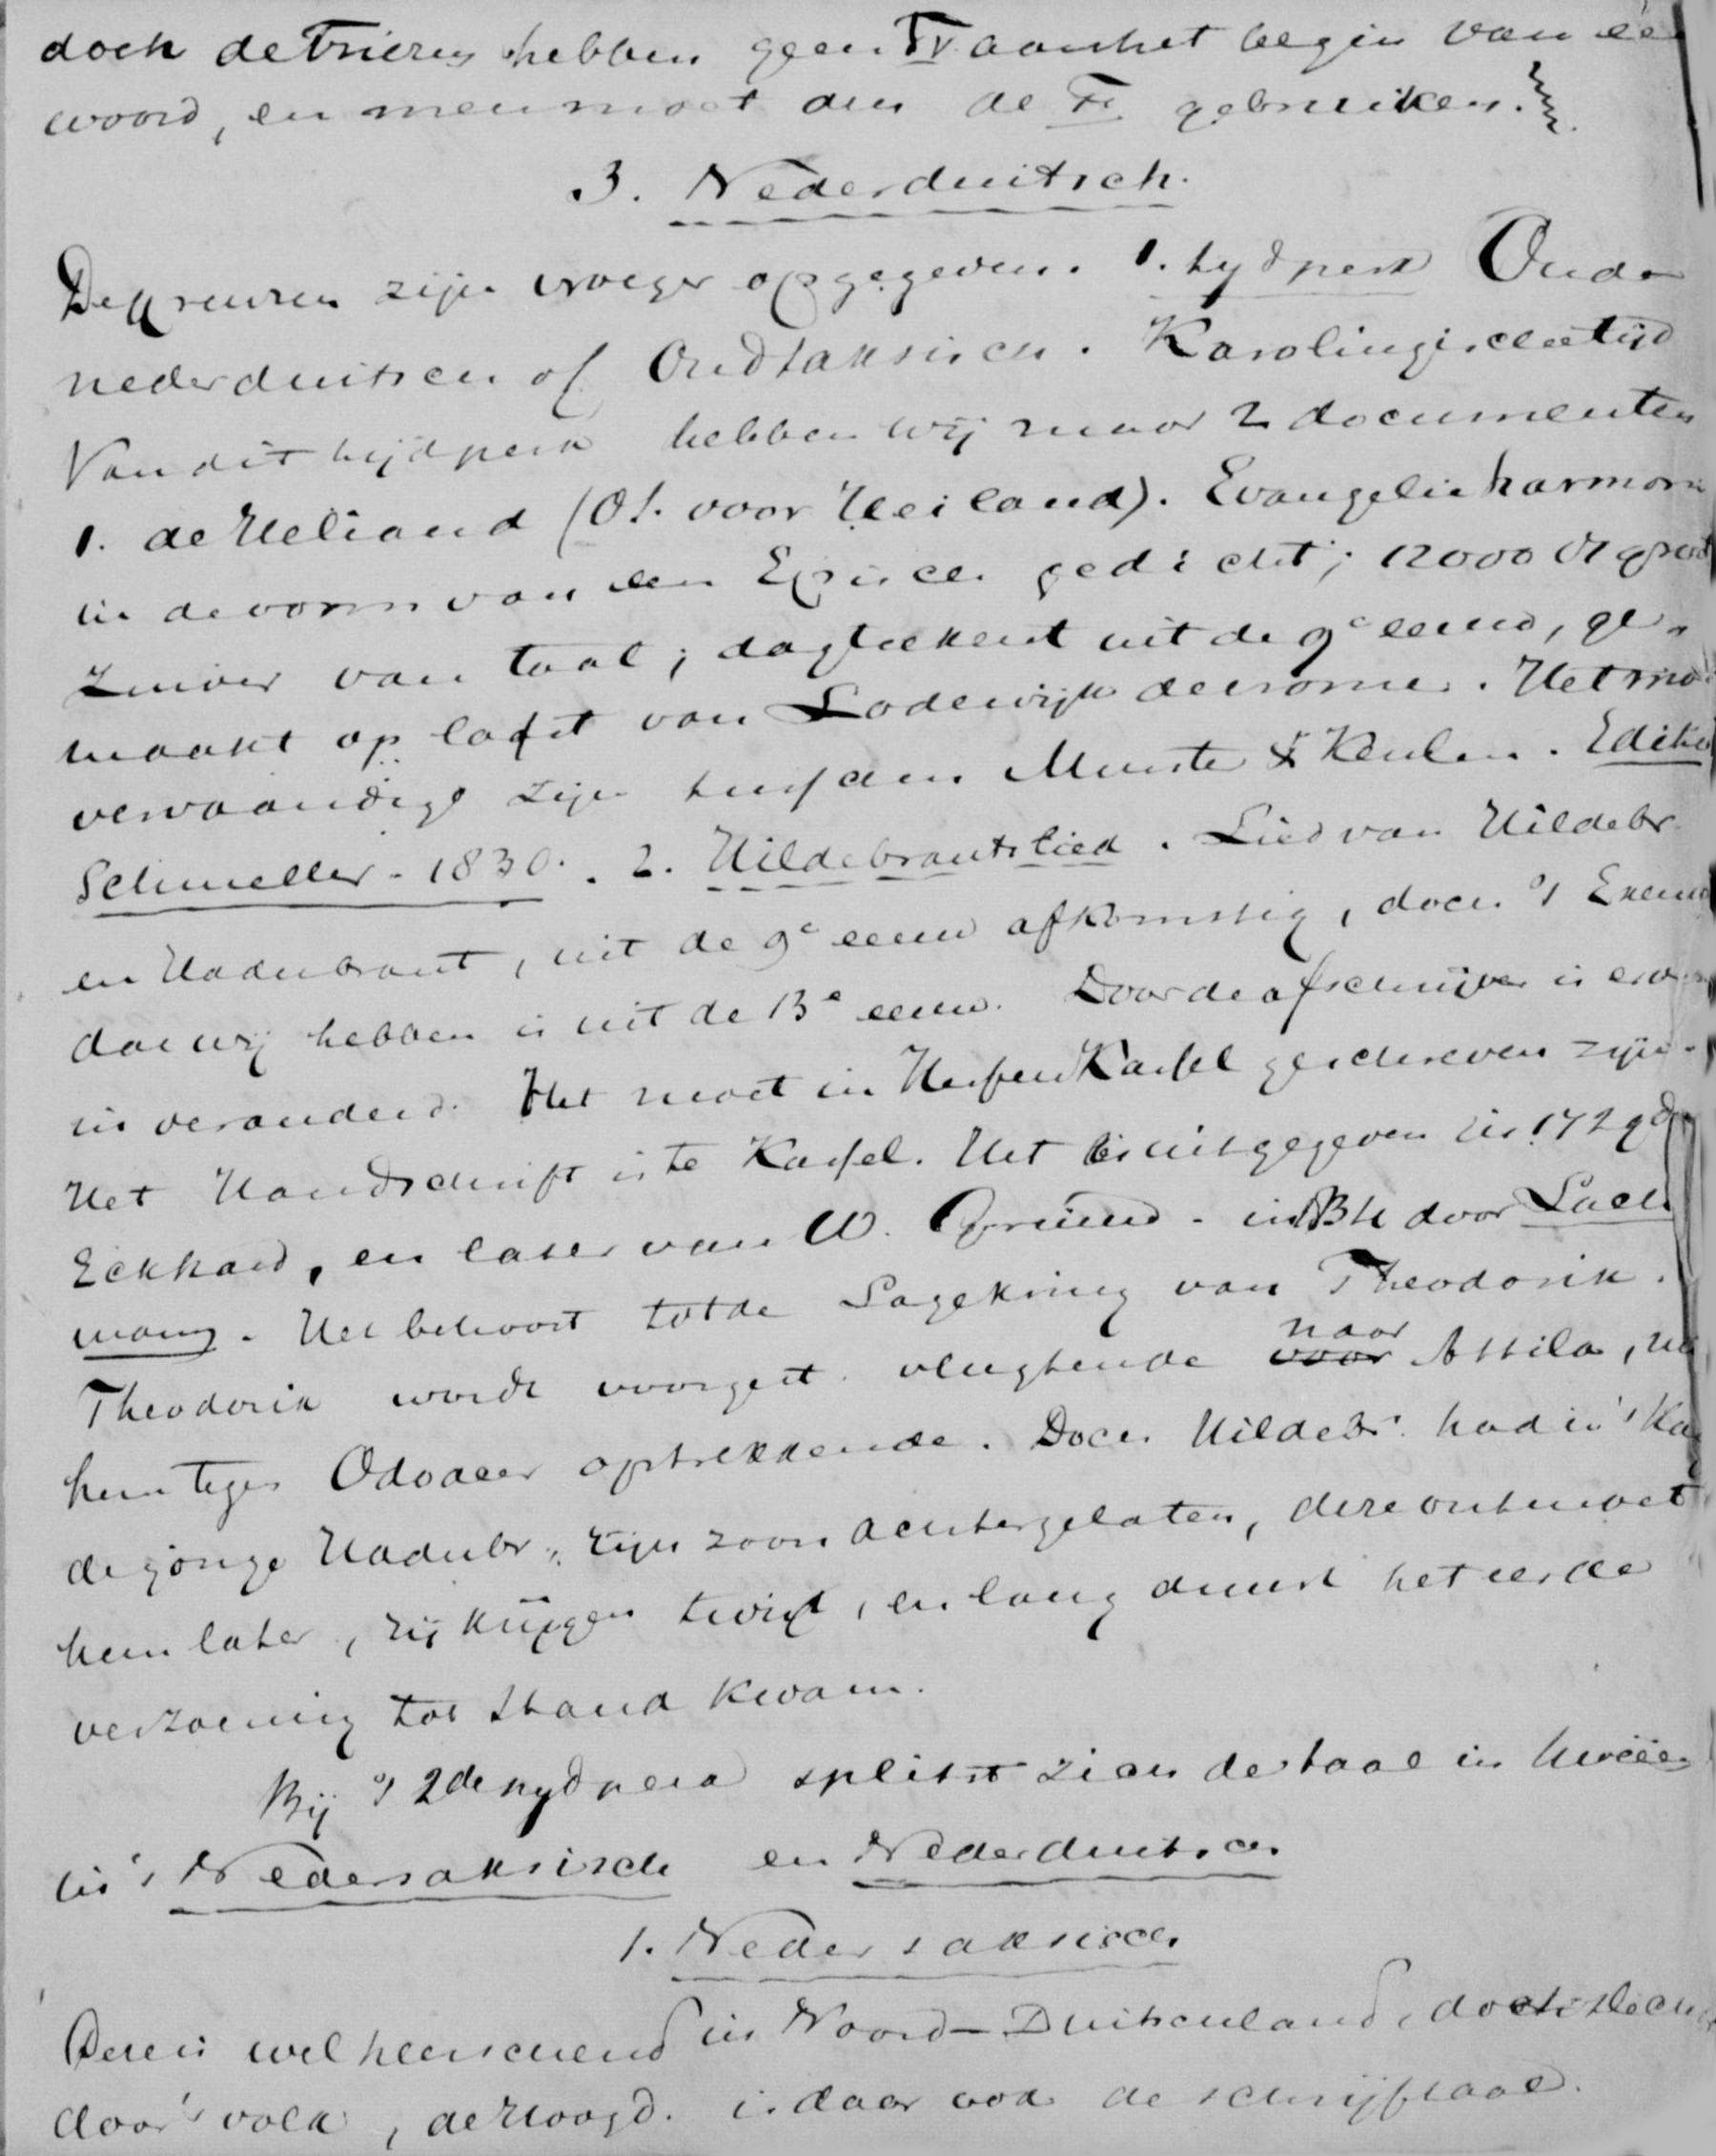 doch de Friezen hebben geen Fr aan het begin van ee
woord, en men moet dus de Fr gebruiken.
3. Nederduitsch.
De grenzen zijn vroeger opgegeven. 1. tydperk Oud-
nederduitsch of Oudsaksisch. Karolingische tijd
Van dit tijdperk hebben wij maar 2 documenten
1. de Heliand (O.S. voor Heiland). Evangelieharmonie
in de vorm van een Episch gedicht; 12000
zuiver van taal; dagteekent uit de 9e eeuw, ge-
maakt op last van Lodewijk de vrome. Het mo
vervaardigd zijn tusschen Munster & Keulen. Editie
Schmeller - 1830. 2. Hildebrantslied. Lied van Hildebr.
en Hadubrant, uit de 9e eeuw afkomstig, doch 't Exem
dat wij hebben is uit de 13e eeuw. Door de afschrijver is er v
in veranderd. Het moet in Hessen Kassel geschreven zijn.
Het Handschrift is te Kassel. Het is uitgegeven in 1729 d
Eckhard, en later van W. Grimm - in door Lach
mann. Het behoort tot de Sagekring van Theodorik.
Theodorik wordt voorgest. vlugtende voor naar Attila, n
hem tegen Odoacer optrekkende. Doch Hildebr. had in 't Ka
de jonge Hadubr., zijn zoon achtergelaten, deze ontmoet
hem later, zij krijgen twist, en lang duurt het eer de
verzoening tot stand kwam.
Bij 't 2de tydperk splitst zich de taal in tweeën
in 't Nedersaksisch en Nederduitsch
1. Nedersaksisch
Deze is wel heerschend in Noord-Duitschland, doch slechts
door 't volk, de Hoogd. is daar ook de schrijftaal.